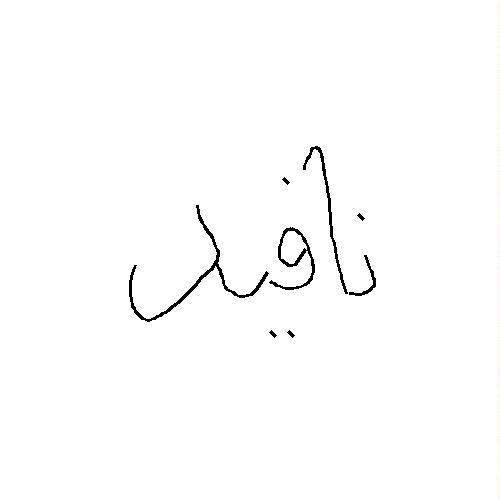 نافيل